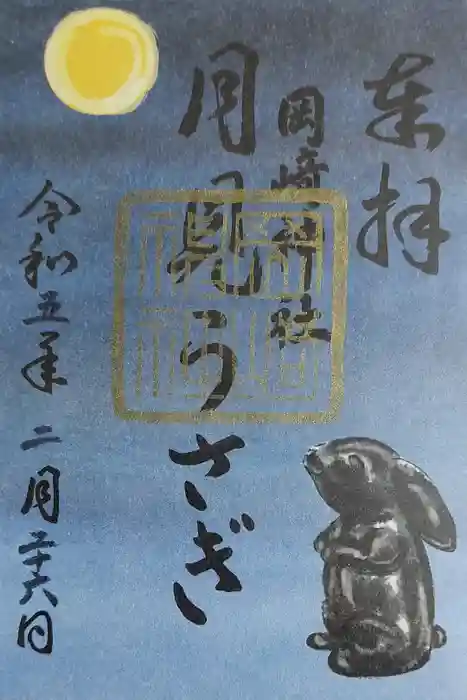 奉拝
岡崎神社
月見うさぎ
令和五年二月二十六日